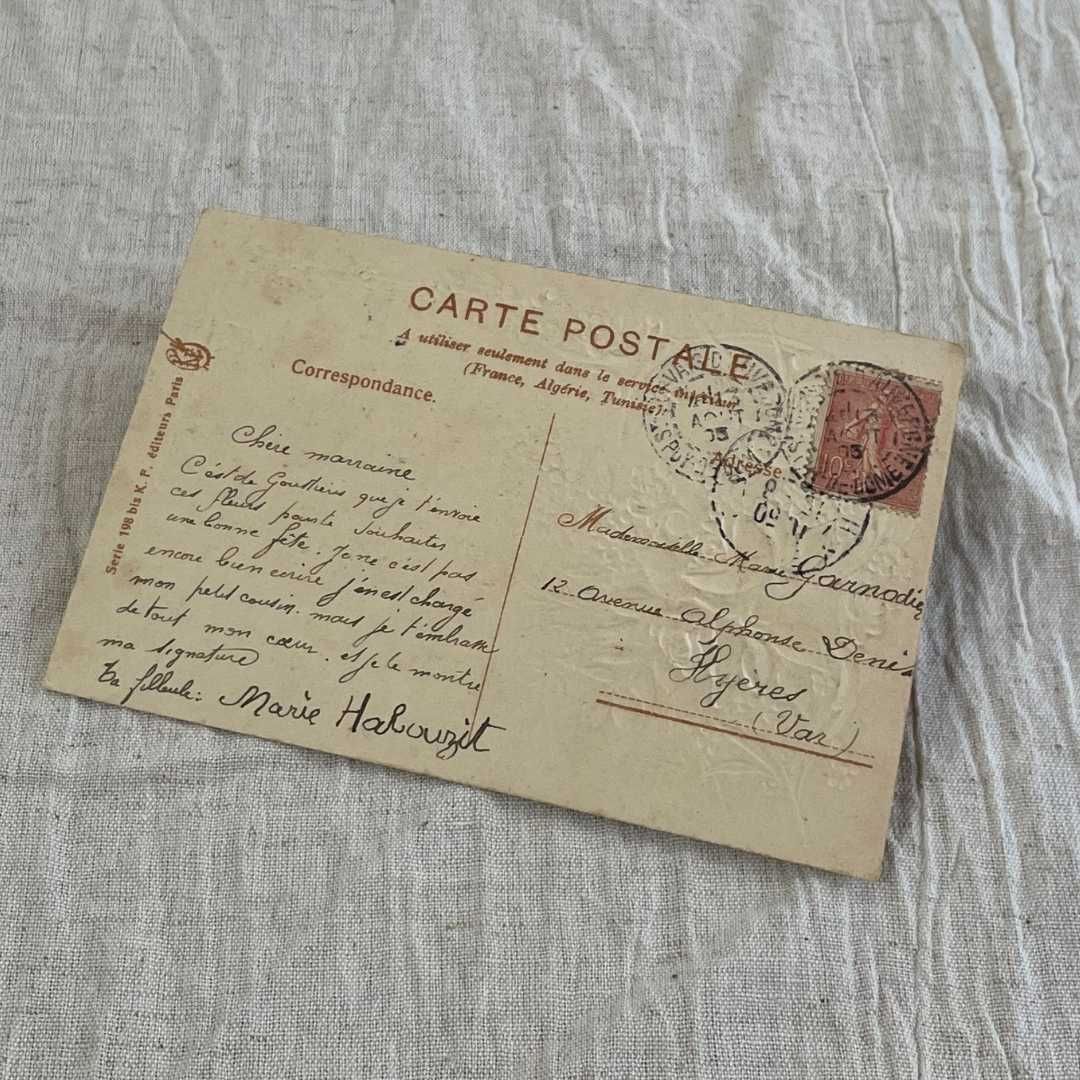 CARTE POSTALE
A utiliser seulement dans le service intérieur
(France, Algérie, Tunisie).
Correspondance.
Adresse
Serie 198 bis K. F. éditeurs Paris
Chère marraine
C'est de que je t'envoie
ces fleurs pour te souhaiter
une bonne fête. Je ne c'est pas
encore bien ecrire j'en est chargé
mon petit cousin. mais je t'embrasse
de tout mon cœur. et je le montre
ma signature
Ta filleule: Marie Habouzit
Mademoiselle Marie Garnodier
12 Avenue Alphonse Denis
Hyères
(Var)
AOUT
05
10